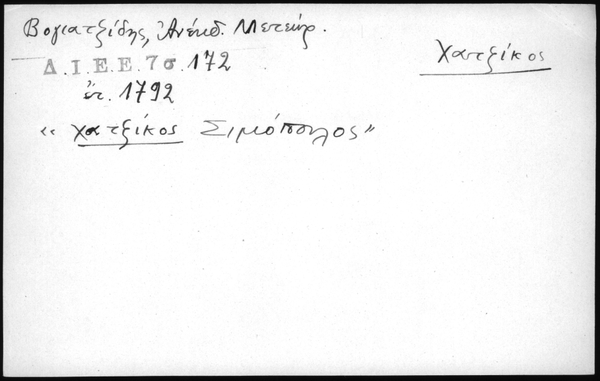 Βογιατζίδης, Ἀνέκδ. Μετεώρ.
Χατζίκος
Δ.Ι.Ε.Ε. 7 σ. 172
ἔτ. 1792
« Χατζίκος Σιμόπουλος »